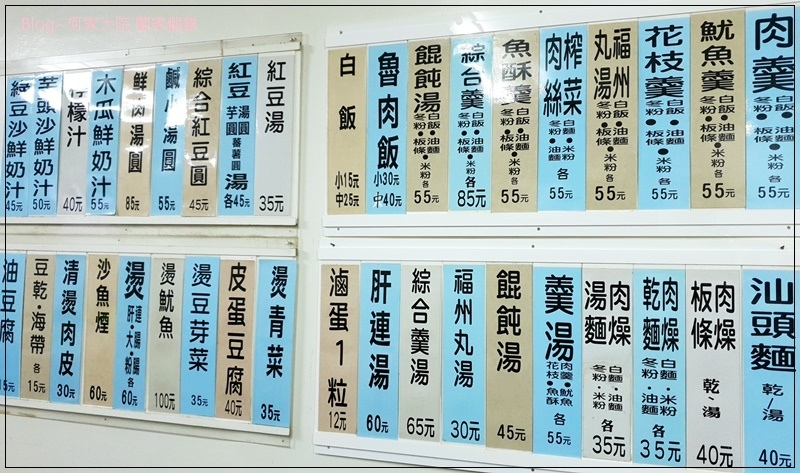 肉羹 白飯•油麵•冬粉•板條•米粉 各 55元
魷魚羹 白飯•油麵•冬粉•板條•米粉 各 55元
花枝羹 白飯•油麵•冬粉•板條•米粉 各 55元
福州丸湯 白飯•油麵•冬粉•板條•米粉 各 55元
榨菜肉絲 白麵•油麵•冬粉•板條•米粉 各 55元
魚酥羹 白飯•油麵•冬粉•板條•米粉 各 55元
綜合羹 白飯•油麵•冬粉•板條•米粉 各 85元
餛飩湯 白飯•油麵•冬粉•板條•米粉 各 55元
魯肉飯 小30元 中40元
白飯 小15元 中25元
汕頭麵 乾/湯 40元
肉燥板條 乾/湯 40元
肉燥乾麵 白麵•米粉 冬粉•油麵 各35元
肉燥湯麵 白麵•油麵 冬粉•米粉 各35元
羹湯 肉羹•魷魚 花枝•魚酥 各 55元
餛飩湯 45元
福州丸湯 30元
綜合羹湯 65元
肝連湯 60元
滷蛋1粒 12元
紅豆湯 35元
紅豆 湯圓 芋圓 蕃薯圓 湯 各45元
綜合紅豆圓 45元
鹹小湯圓 55元
鮮肉湯圓 85元
木瓜鮮奶汁 55元
檸檬汁 40元
芋頭沙鮮奶汁 50元
綠豆沙鮮奶汁 45元
燙青菜 35元
皮蛋豆腐 40元
燙豆芽菜 35元
燙魷魚 100元
燙 肝連•大腸•粉腸 各 60元
沙魚煙 60元
清燙肉皮 30元
豆乾•海帶 各 15元
油豆腐 15元